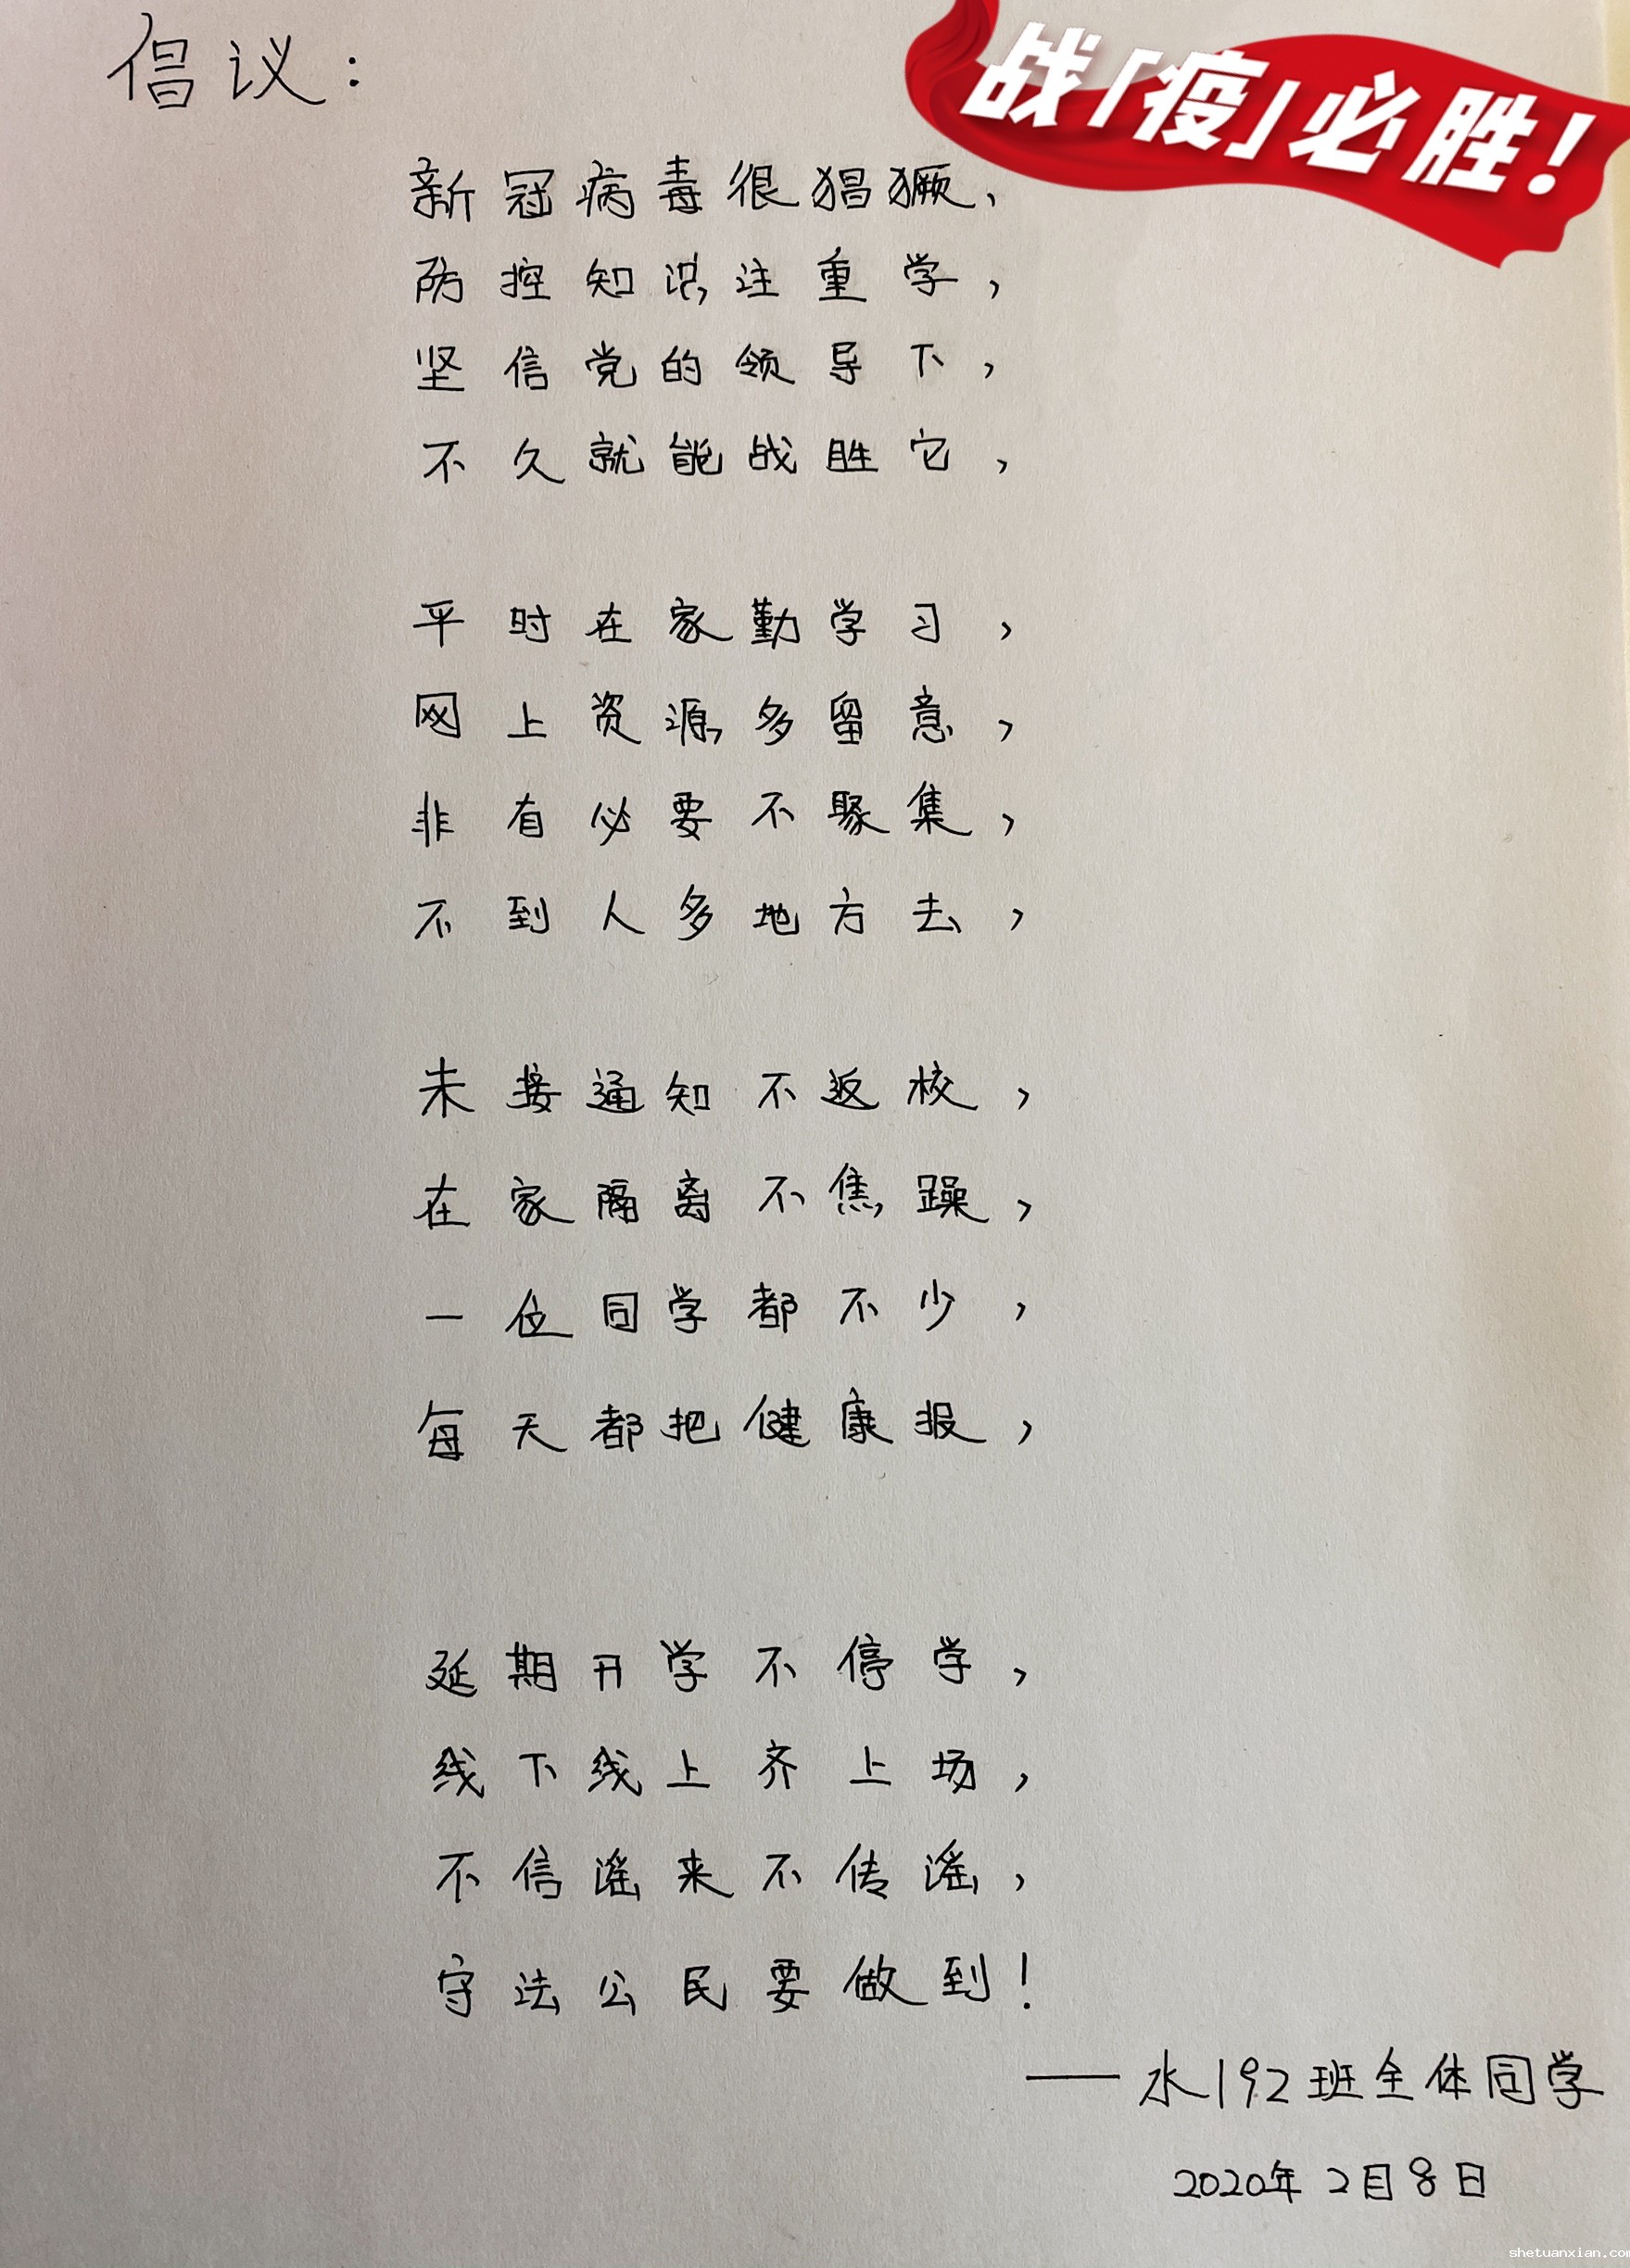 倡议：
战「疫」必胜！
新冠病毒很猖獗、
防控知识注重学，
坚信党的领导下，
不久就能战胜它，
平时在家勤学习，
网上资源多留意，
非有必要不聚集，
不到人多地方去，
未接通知不返校，
在家隔离不焦躁，
一位同学都不少，
每天都把健康报，
延期开学不停学，
线下线上齐上场，
不信谣来不传谣，
守法公民要做到！
——水192班全体同学
2020年2月8日
shetuanxian.com